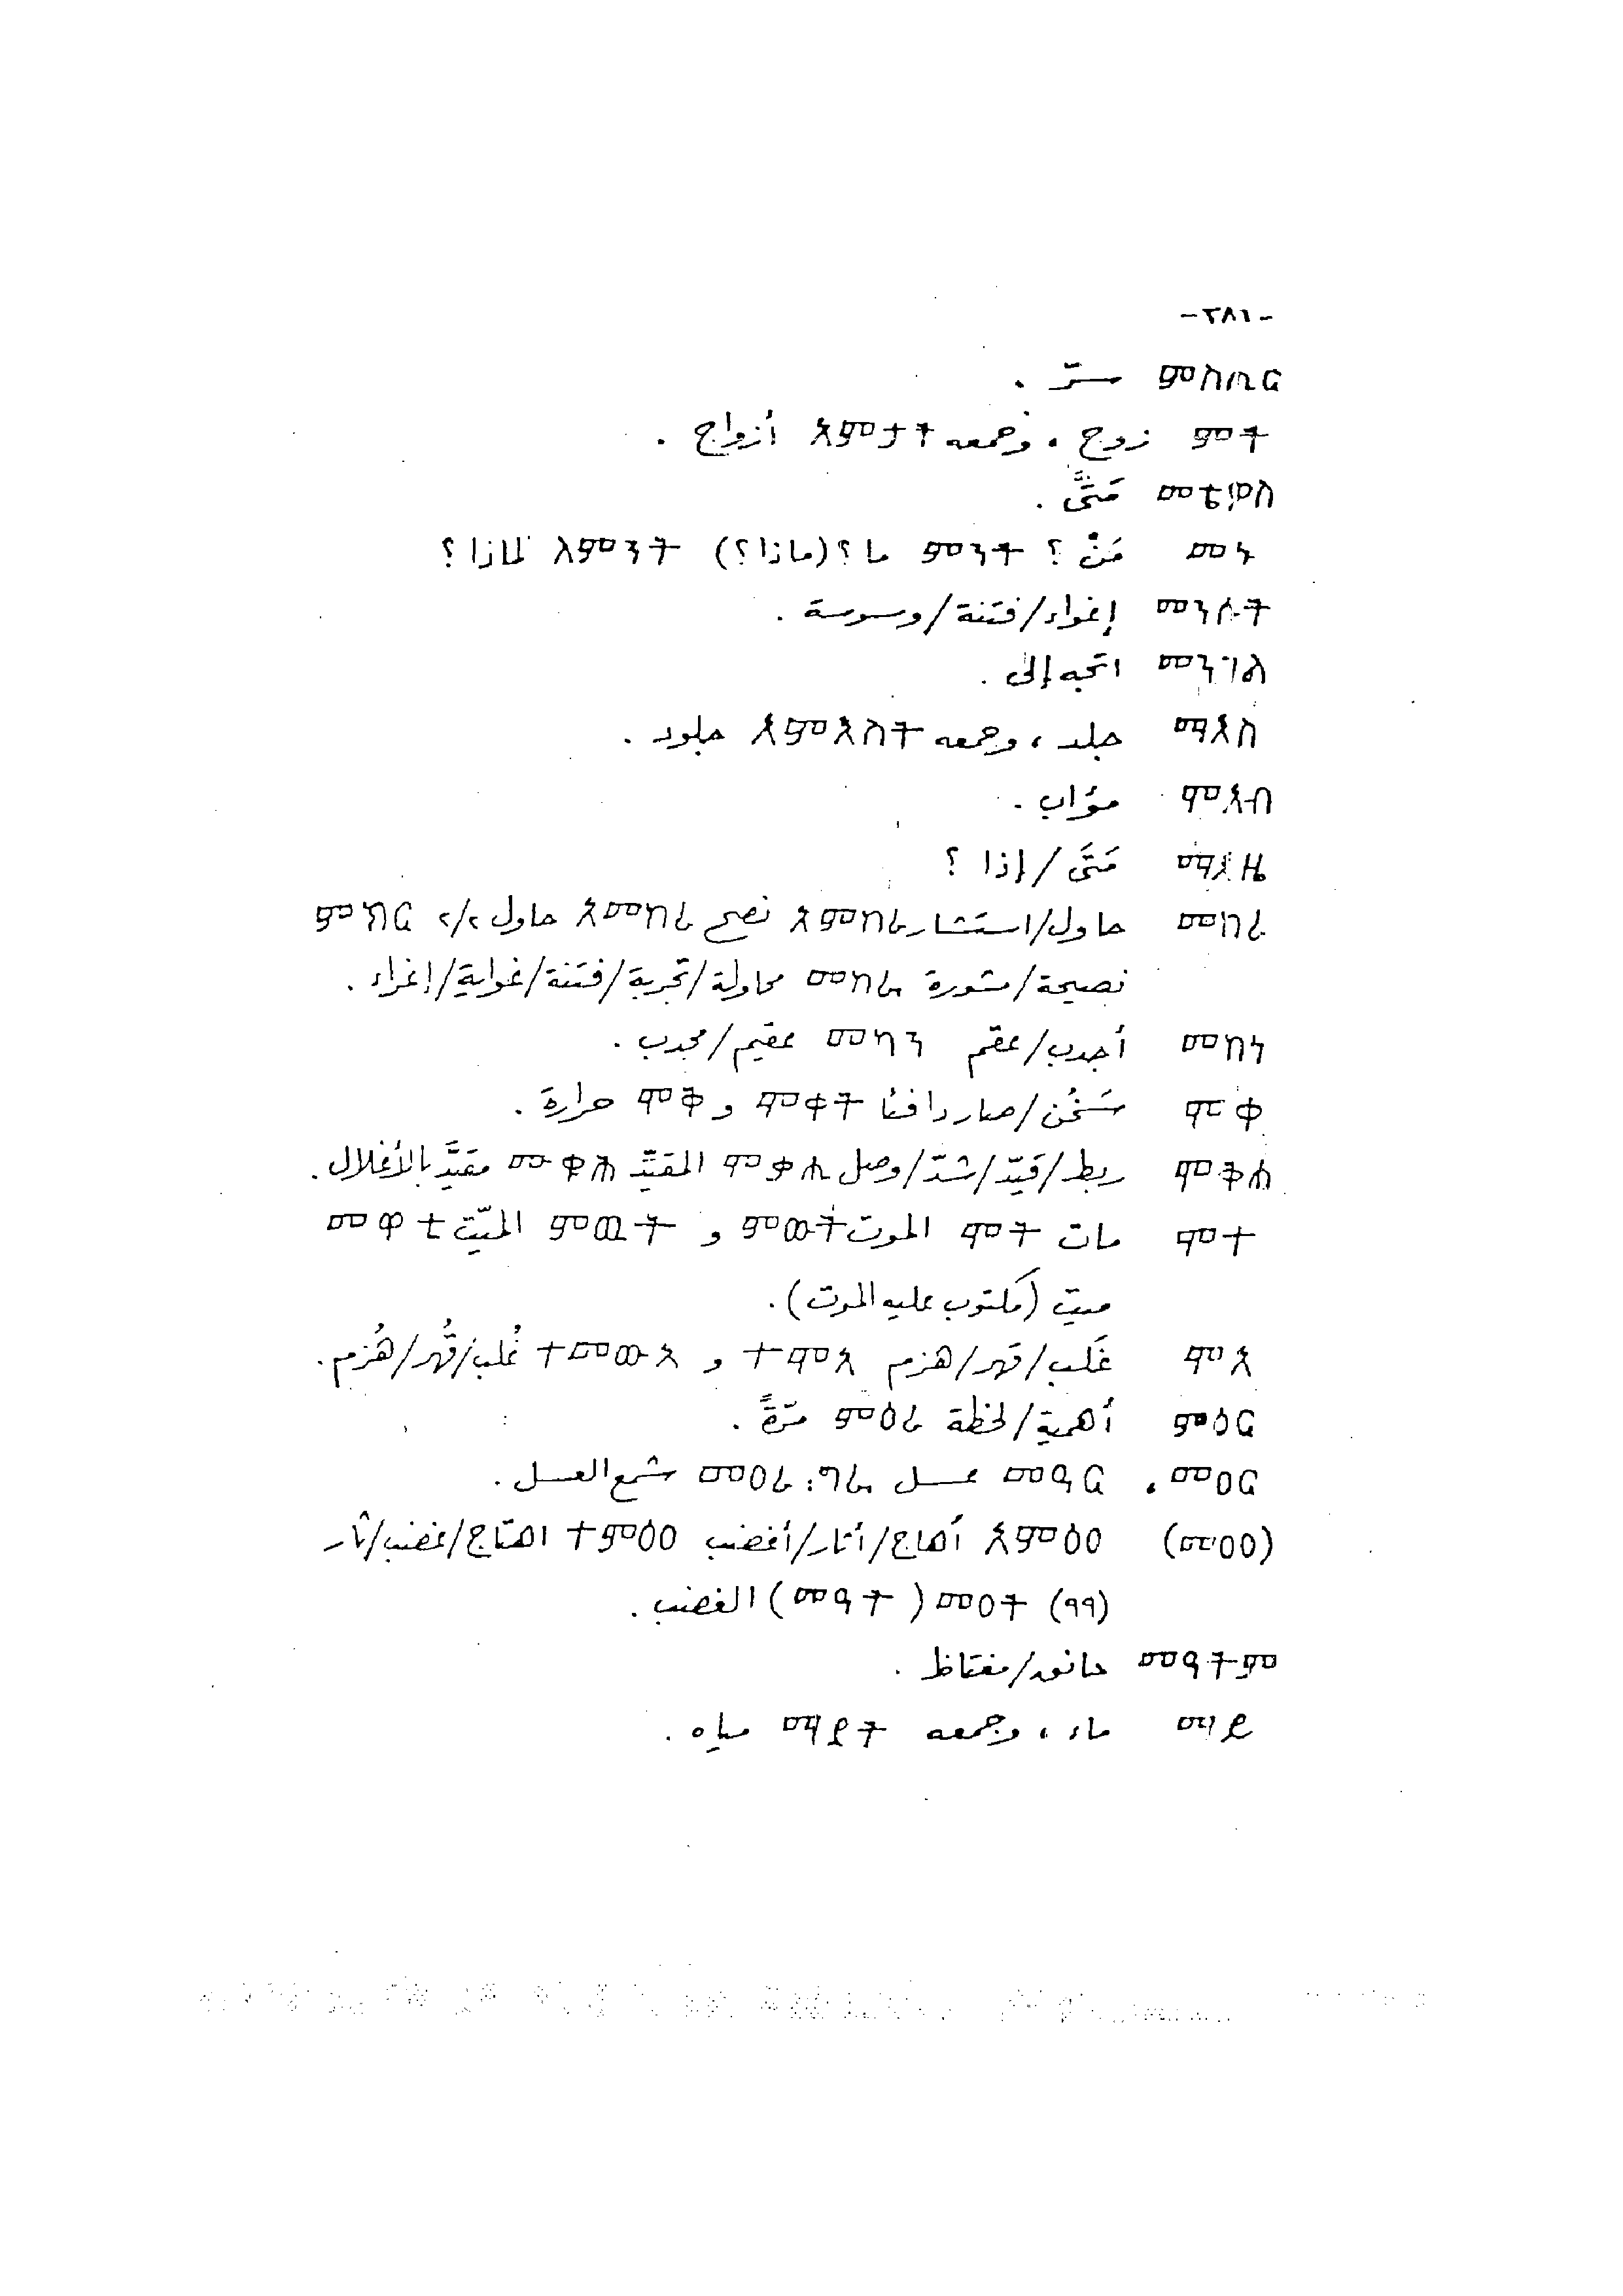 -٢٨١-
ምስጢር سرّ .
ምት زوج ، وجمعه አምታት أزواج .
مَتَّى .
መኑ مَنْ ؟ ምንት ما ؟ (ماذا ؟) ለምንት لماذا ؟
መንሱት إغواء/فتنة/وسوسة .
መንገለ اتجه إلى .
ማእስ جلد ، وجمعه አምእስት جلود .
ሞአብ مؤاب .
ማእዜ مَتَى/إذا ؟
መከረ حاول/استشار አምከረ نصح አመከረ حاول ٢/٢ ምክር
نصيحة/مشورة መከራ محاولة/تجربة/فتنة/غواية/إغراء .
መከነ أجدب/عقم መካን عقيم/مجدب .
ሞቀ سَخُن/صار دافئا ሞቅት و ሞቅ حرارة .
ሞቅሐ ربط/قيّد/شدّ/وصل ሞቅሕ المقيّد መዋቅሕ مقيَّد بالأغلال .
ሞተ مات ሞት الموت ምውት و ምዉት الميّت መዋቲ
ميت (مكتوب عليه الموت) .
ሞአ غَلب/قهر/هزم ተሞአ و ተመውአ غُلب/قُهر/هُزم .
ምዕር أهمية/لحظة ምዕረ مرّةً .
መዐር ، መዓር عسل መዐረ شمع العسل .
(መዐዐ) አምዕዐ أهاج/أثار/أغضب ተምዕዐ اهتاج/غضب/ثار
(٩٩) መዐት (መዓት) الغضب .
መዓትም حانق/مغتاظ .
ማይ ماء ، وجمعه ማያት مياه .